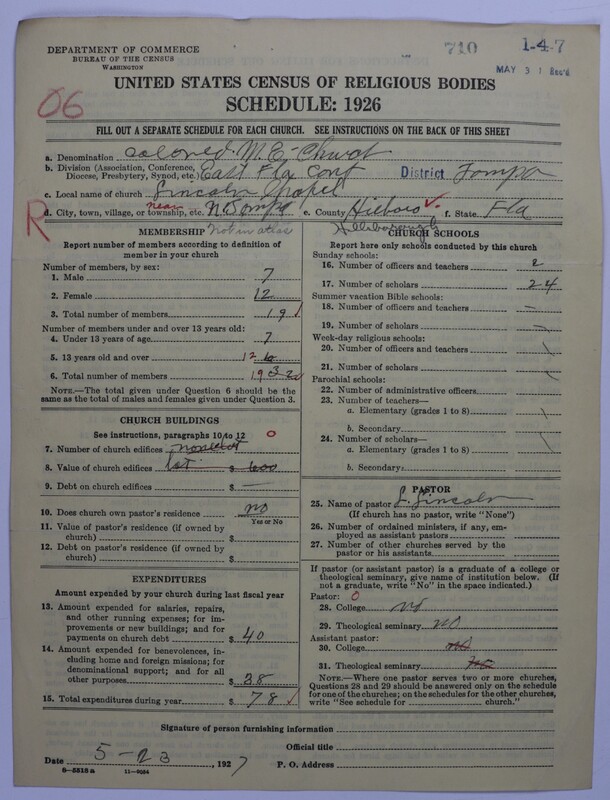 710
1-4-7
MAY 31 Rec'd
DEPARTMENT OF COMMERCE
BUREAU OF THE CENSUS
WASHINGTON
UNITED STATES CENSUS OF RELIGIOUS BODIES
SCHEDULE: 1926
06
FILL OUT A SEPARATE SCHEDULE FOR EACH CHURCH. SEE INSTRUCTIONS ON THE BACK OF THIS SHEET
a. Denomination Colored M. E. Church
b. Division (Association, Conference, Diocese, Presbytery, Synod, etc.) East Fla Conf District Tompa
c. Local name of church Lincoln Chapel
R
near
d. City, town, village, or township, etc. N. Tompa e. County Hilsboro f. State Fla
Not in atlas Hillsborough
MEMBERSHIP
Report number of members according to definition of
member in your church
Number of members, by sex:
1. Male 7
2. Female 12
3. Total number of members 19
Number of members under and over 13 years old:
4. Under 13 years of age 7
5. 13 years old and over 12
6. Total number of members 19
NOTE.—The total given under Question 6 should be the
same as the total of males and females given under Question 3.
CHURCH BUILDINGS
See instructions, paragraphs 10 to 12 0
7. Number of church edifices
8. Value of church edifices lot $ 600
9. Debt on church edifices $ —
10. Does church own pastor's residence no
Yes or No
11. Value of pastor's residence (if owned by
church) $
12. Debt on pastor's residence (if owned by
church) $
EXPENDITURES
Amount expended by your church during last fiscal year
13. Amount expended for salaries, repairs,
and other running expenses; for im-
provements or new buildings; and for
payments on church debt $ 40
14. Amount expended for benevolences, in-
cluding home and foreign missions; for
denominational support; and for all
other purposes $ 38
15. Total expenditures during year $ 78
CHURCH SCHOOLS
Report here only schools conducted by this church
Sunday schools:
16. Number of officers and teachers 2
17. Number of scholars 24
Summer vacation Bible schools:
18. Number of officers and teachers
19. Number of scholars
Week-day religious schools:
20. Number of officers and teachers
21. Number of scholars
Parochial schools:
22. Number of administrative officers
23. Number of teachers—
a. Elementary (grades 1 to 8)
b. Secondary
24. Number of scholars—
a. Elementary (grades 1 to 8)
b. Secondary
PASTOR
25. Name of pastor L. Lincoln
(If church has no pastor, write "None")
26. Number of ordained ministers, if any, em-
ployed as assistant pastors
27. Number of other churches served by the
pastor or his assistants
If pastor (or assistant pastor) is a graduate of a college or
theological seminary, give name of institution below. (If
not a graduate, write "No" in the space indicated.)
Pastor: 0
28. College no
29. Theological seminary no
Assistant pastor:
30. College no
31. Theological seminary no
NOTE.—Where one pastor serves two or more churches,
Questions 28 and 29 should be answered only on the schedule
for one of the churches; on the schedules for the other churches,
write "See schedule for church."
Signature of person furnishing information
Official title
Date 5-23, 1927 P. O. Address
8—5518 a 11—9034